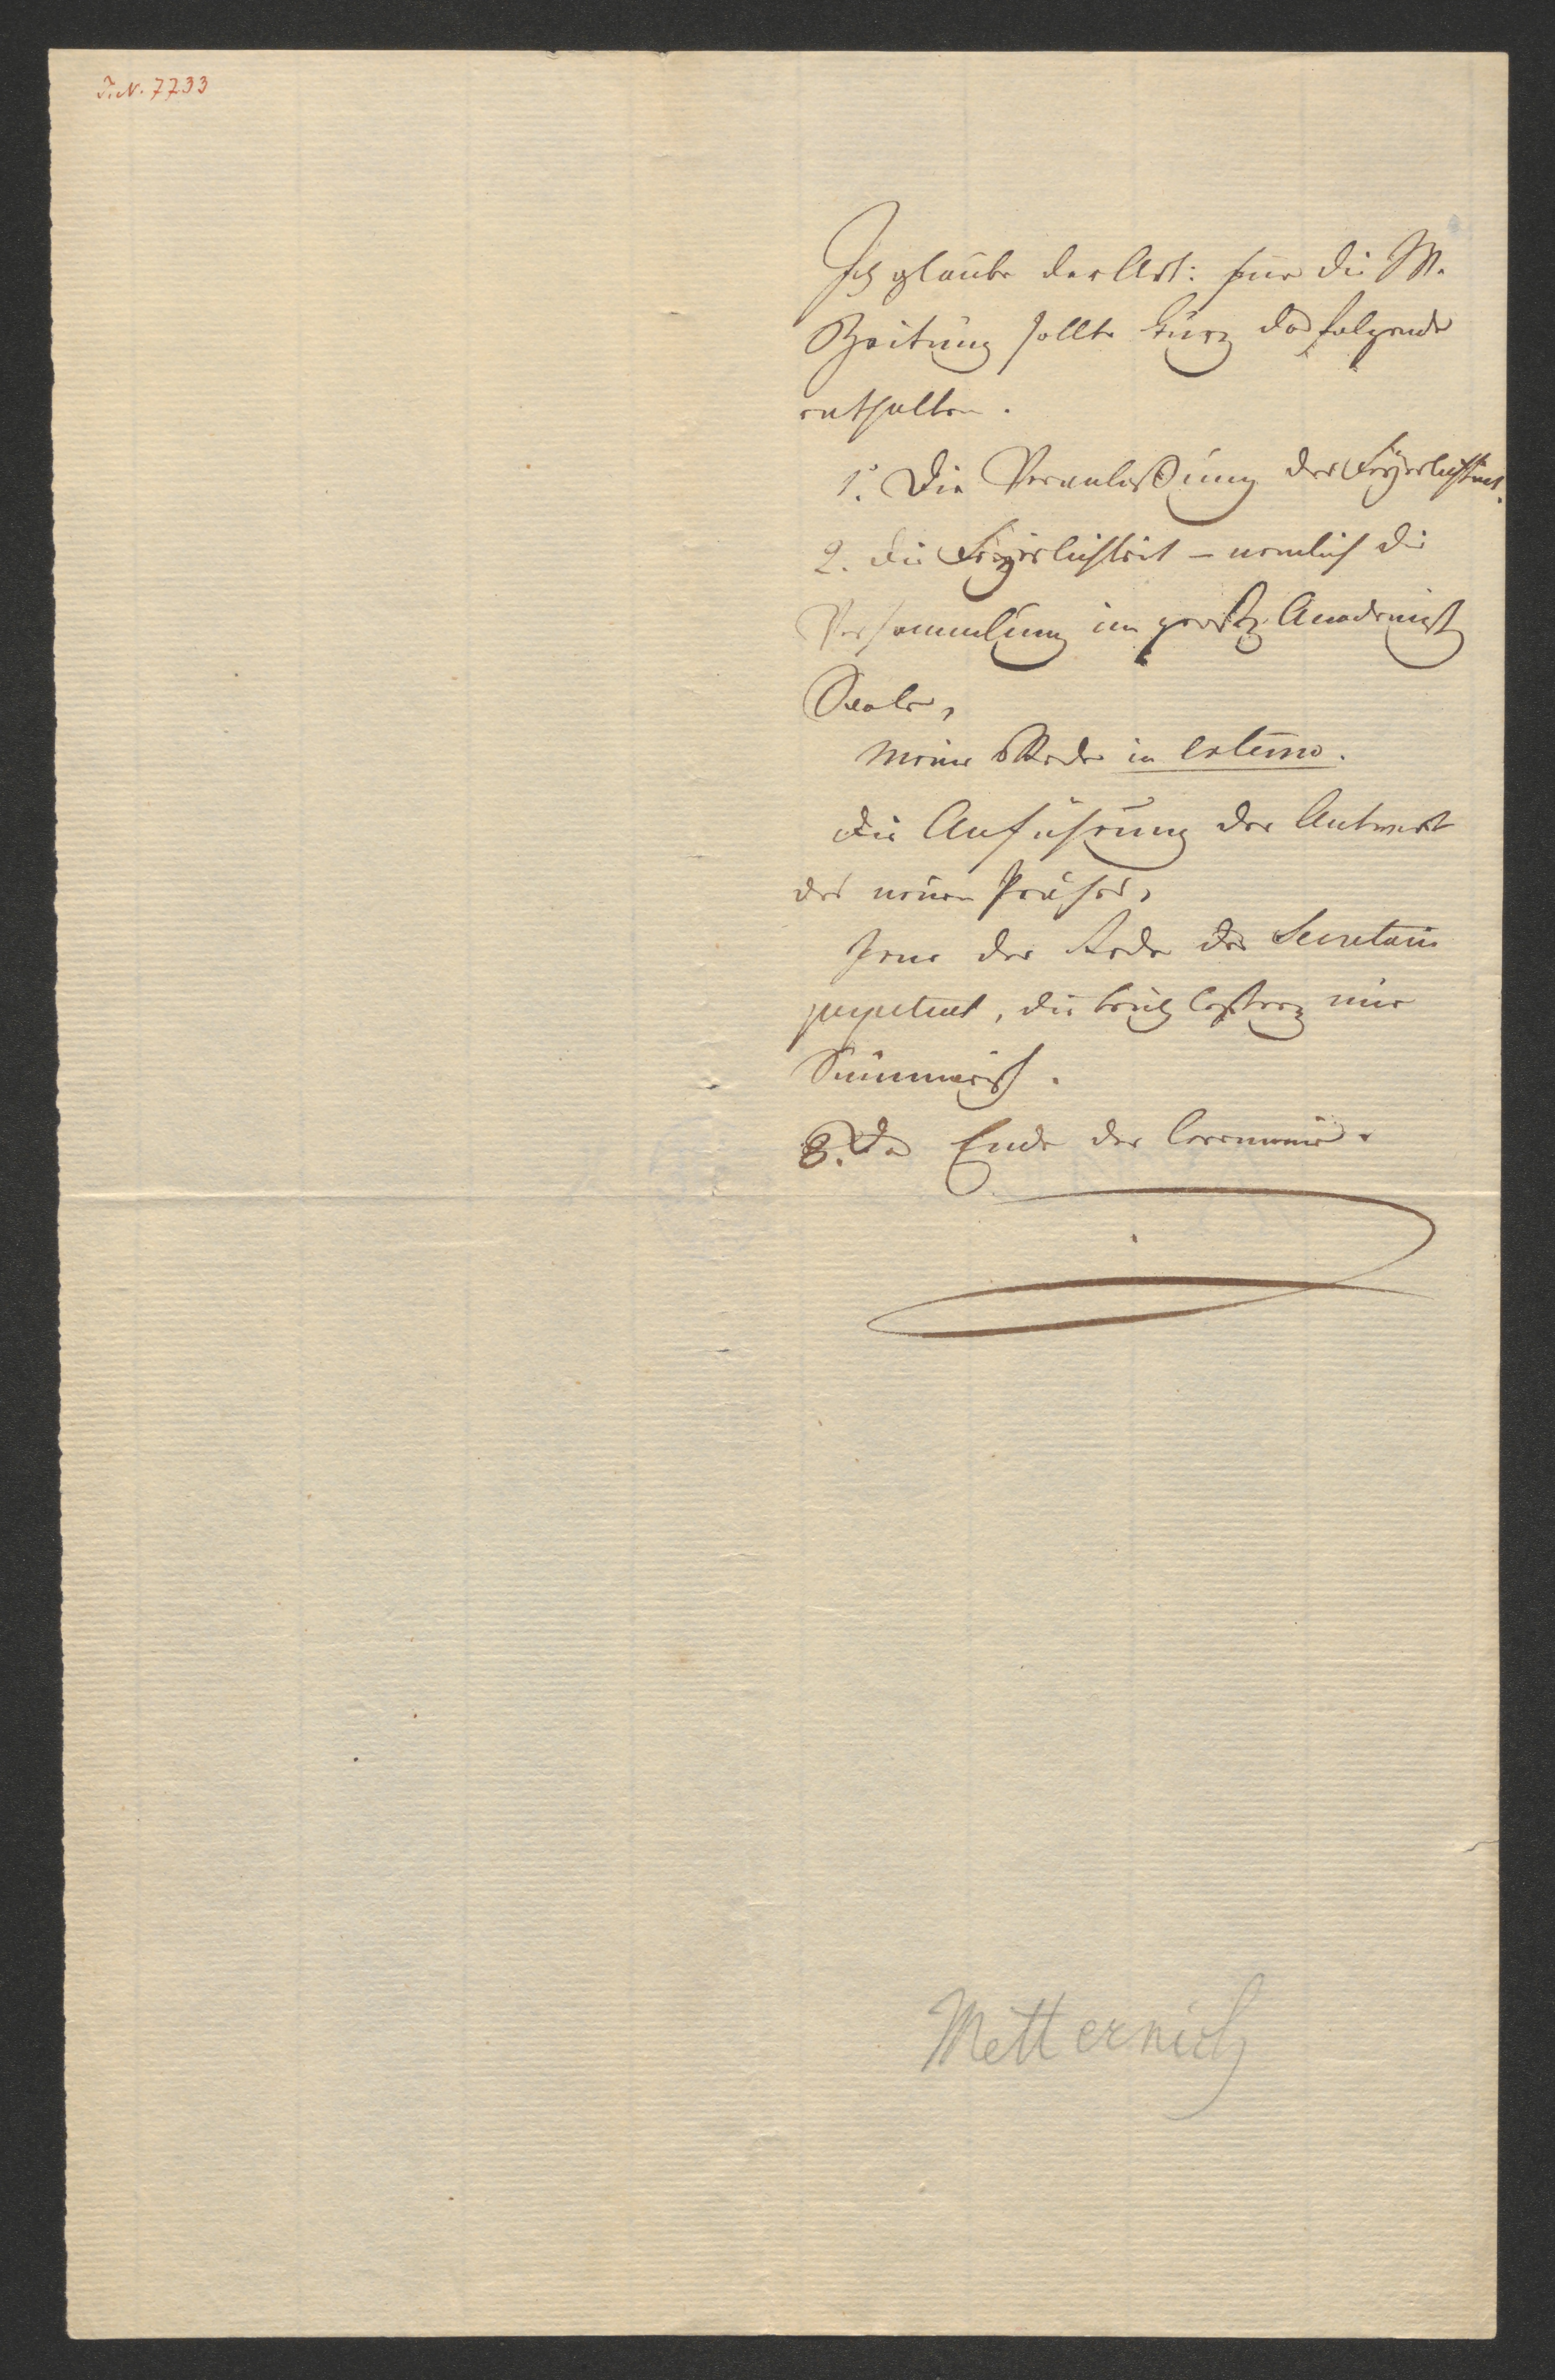 I.N. 7733
Ich glaube der Art: für die W.
Zeitung sollte kurz das folgende
enthalten.
1. Die Veranlaßung der Feyerlichkeit.
2. die Feyerlichkeit – nemlich die
Versammlung im großen Academisch
Saale,
meine Rede in extenso.
die Anführung der Antwort
des neuen Präses,
jene der Rede des Secretairs
perpetuel, die beyden letztern nur
Summarisch.
3. Das Ende der Ceremonie.
Metternich